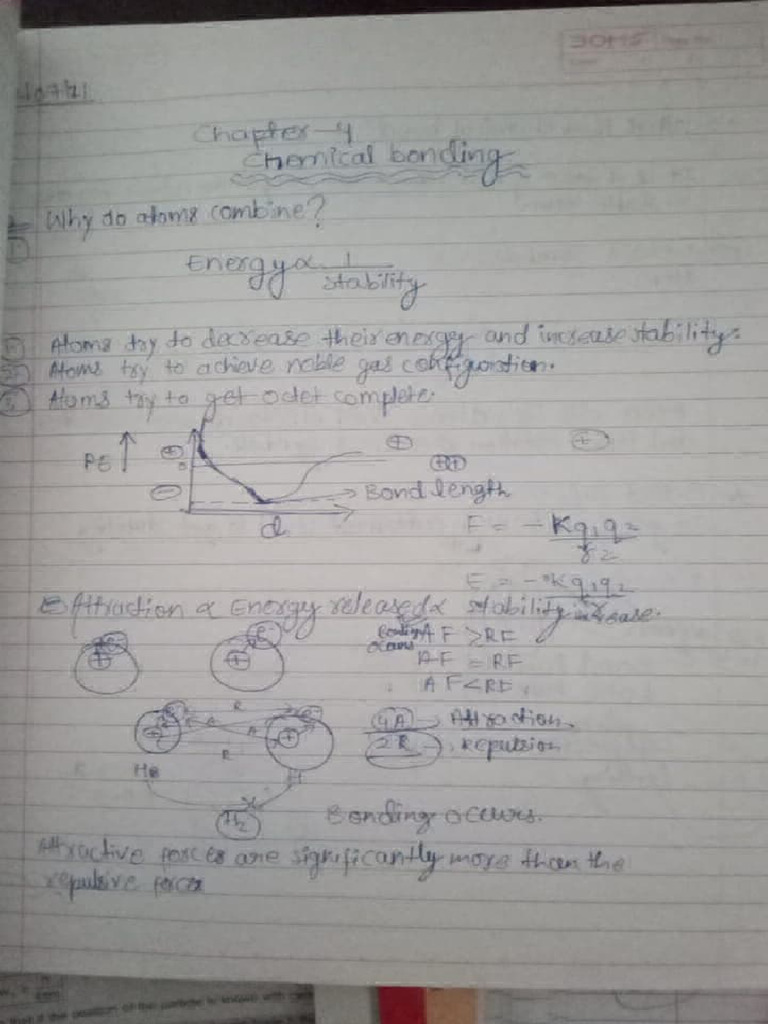 Chapter-4
Chemical bonding
Why do atoms combine?
①
Energy ∝ 1/stability
① Atoms try to decrease their energy and increase stability.
② Atoms try to achieve noble gas configuration.
③ Atoms try to get octet complete.
PE ↑ + 0 - + ++ +
Bond length
d
F = -Kq1q2/r2
E = -Kq1q2/r
Attraction ∝ Energy released ∝ stability increase.
+ e- + e- Bonding occurs AF > RF
AF = RF
AF < RF
e- R e-
+ A A + 4A → Attraction
R 2R → repulsion
He H
H2 Bonding occurs.
Attractive forces are significantly more than the
repulsive force